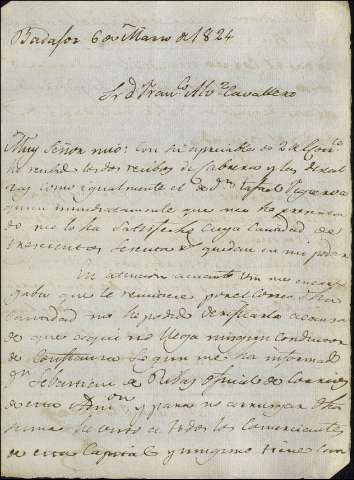 Badajoz 6 de Marzo de 1824
Sr. dn. Franco. Alvz. Cavallero
Muy Señor mio: Con su apreciable de 2 del
he recibido los dos recibos de Cabrera y las
como igualmente el de dn. Rafael Figueroa
quien inmediatamente que me ha presenta
do me lo ha satisfecho cuya cantidad de
trescientos sesenta rs. quedan en mi poder
En atencion a cuanto Vm me encar
gaba que le remitiese por el Correo dha
cantidad no he podido verificarlo a causa
de que aqui no llega ningun conductor
de confianza segun me ha informado
dn. Sebastian de Rivas oficial de Correos
de esta Admon. y para no arriesgar dha
suma he visto a todos los Comerciantes
de esta Capital y ninguno tiene con